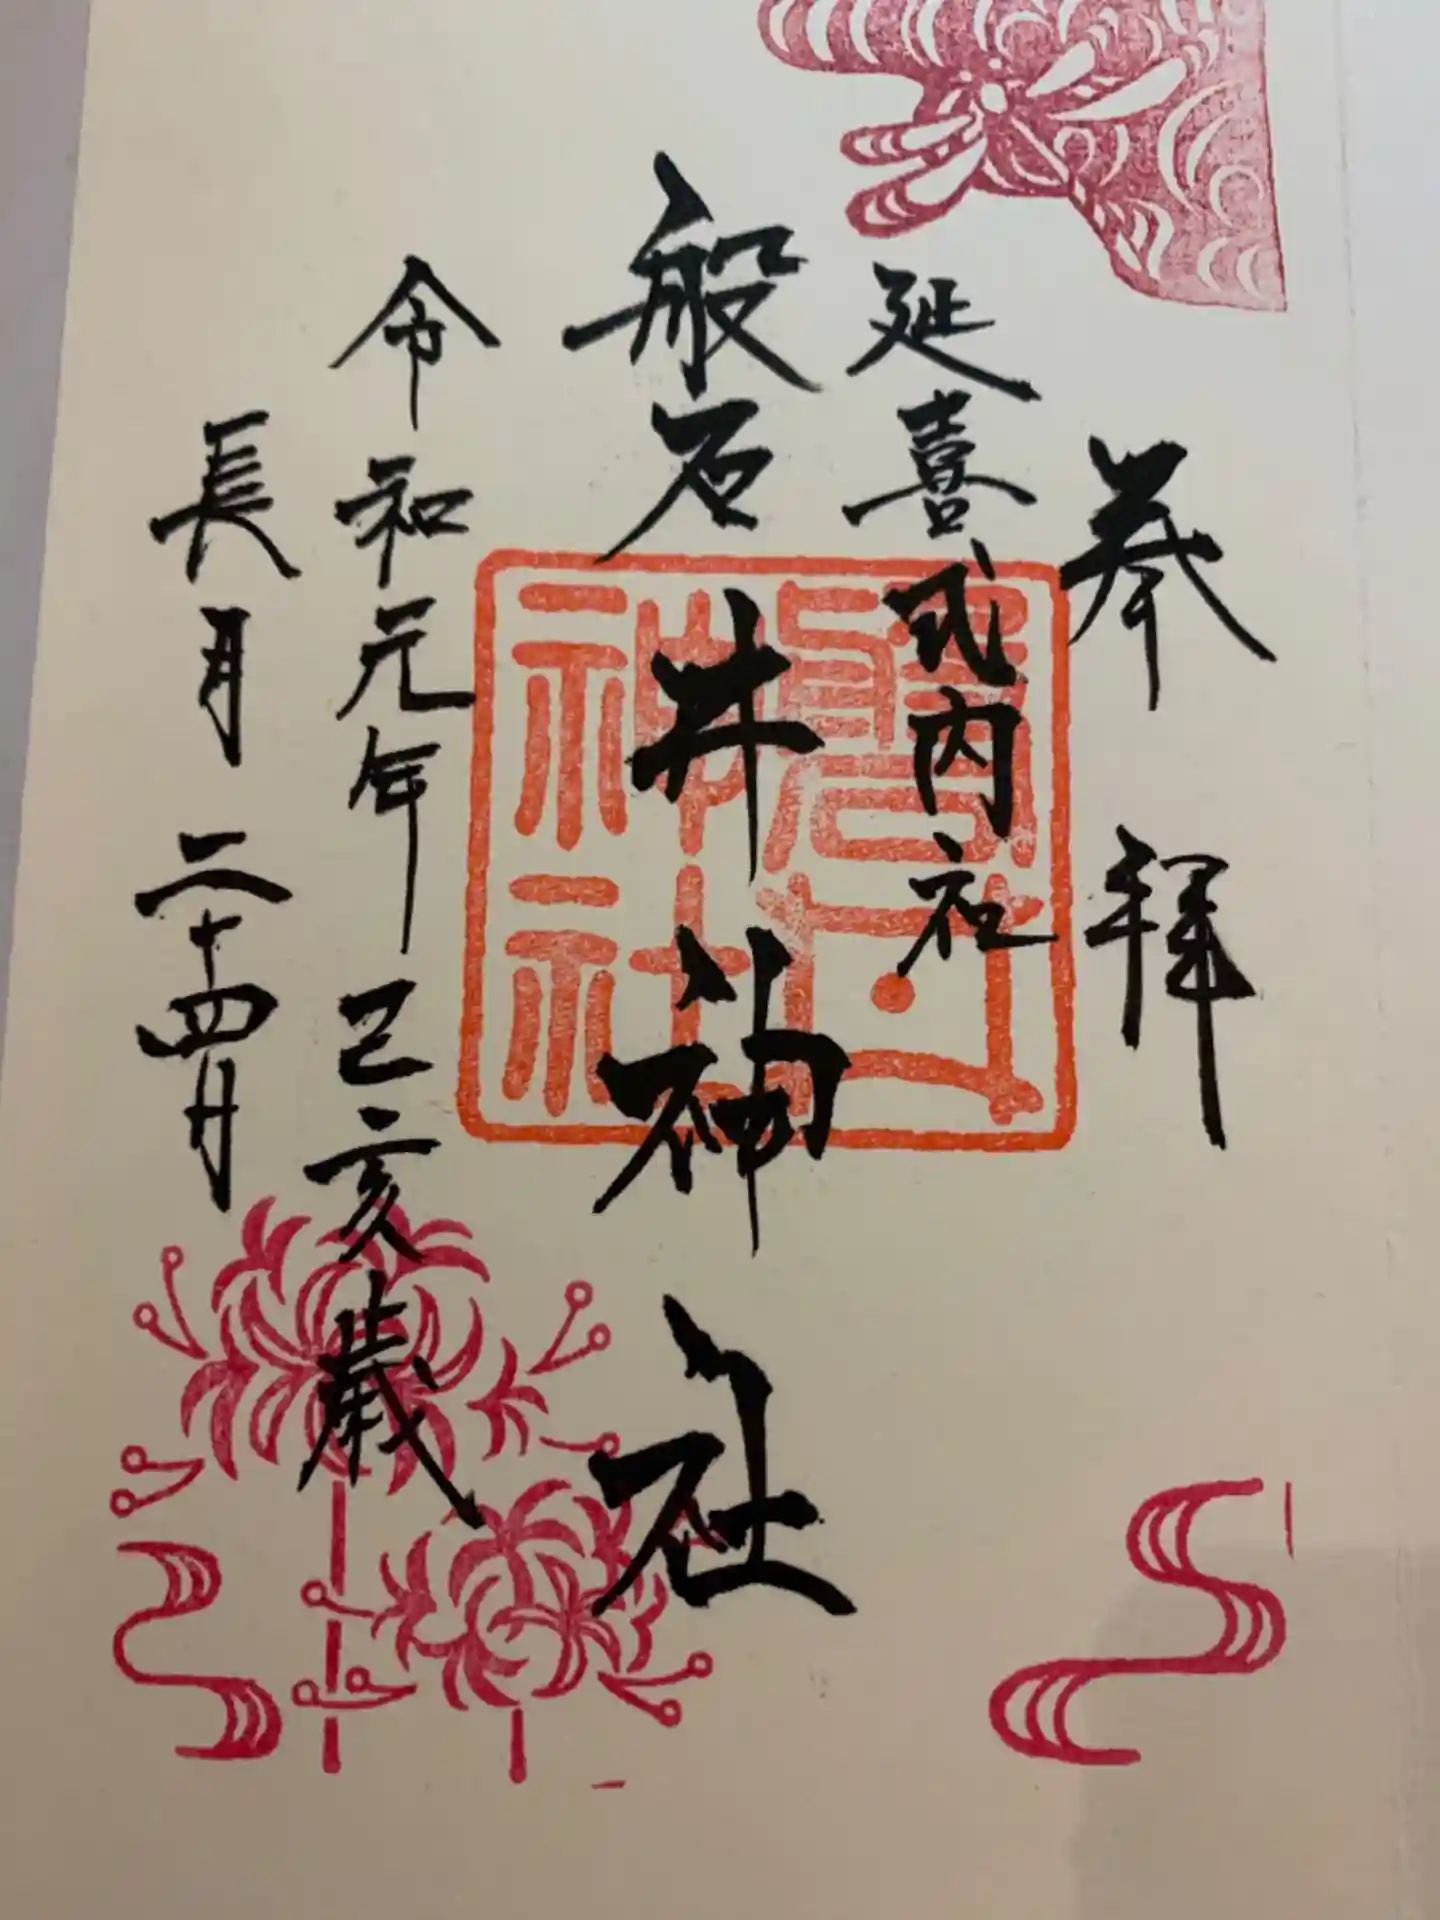 奉拝
延喜式内社
磐井神社
令和元年己亥歳
長月二十四日
磐井
神社